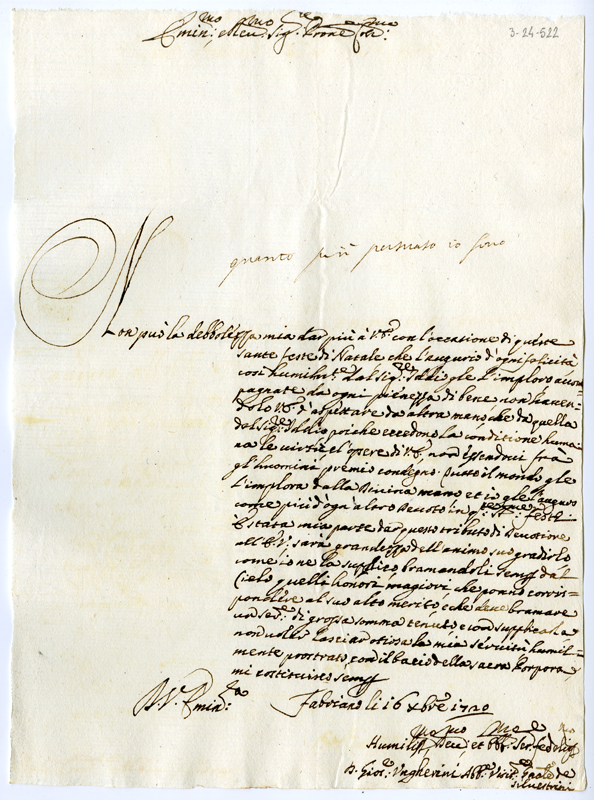 3-24-622
Emin:mo e Reu:mo Sig:re Prone Col:mo
quanto più persuaso io sono
Non può la debbolezza mia dar più à V.E. con l'occasione di queste
sante feste di Natale che l'augurio d'ogni felicità
così humilm.te dal Sig:re Iddio gle l'imploro accom=
pagnate da ogni pienezza di bene non haven=
dolo V.E. d'aspettare da altra mano, che da quella
del Sig:re Iddio poiche eccedono la conditione huma=
na le virtù e l'opere di V.E. non essendoci frà
gl'huomini premio condegno. Tutto il mondo gle
l'implora dalla Divina mano et io gle l'auguro
come più d'ogn'altro devoto in q.te S.te feste
È stata mia parte dar questo tributo di devotione
all'E.V. sarà grandezza dell'animo suo gradirlo
come io ne la supplico bramandoli semp. dal
Cielo quelli honori magiori, che ponno corris=
pondere al suo alto merito e che deve bramare
un ser.re di grossa somma tenuto e con supplicarla
non vogli lasciar otiosa la mia servitù humil=
mente prostrato con il bacio della sacra Porpora
mi costituisco semp.
D. V. Emin:za
Fabriano li 16 Xbre 1720
Humiliss.mo Deu:mo et Obb:mo Ser. fedeliss.mo
D. Gios. Ungherini Abb.e Visit.re Gnale de
Silvestrini